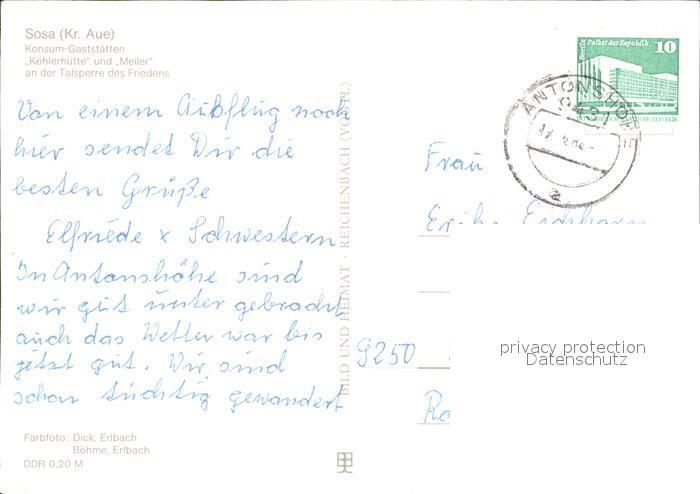 Sosa (Kr. Aue)
Konsum-Gaststätten
„Köhlerhütte" und „Meiler"
an der Talsperre des Friedens
Von einem Ausflug nach
hier sendet Dir die
besten Grüße
Elfriede x Schwestern
In Antonshöhe sind
wir gut unter gebracht
auch das Wetter war bis
jetzt gut. Wir sind
schon tüchtig gewandert
Farbfoto: Dick, Erlbach
Böhme, Erlbach
DDR 0,20 M
BILD UND HEIMAT · REICHENBACH (VOGTL)
Berlin Palast der Republik 10
ANTONSHÖHE
9431
a
Frau
9250
privacy protection
Datenschutz